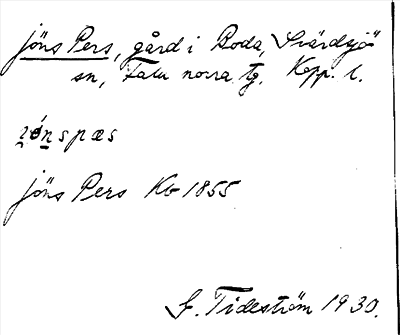 Jöns Pers, gård i Boda, Svärdsjö
sn, Falu norra tg. Kopp. l.
jönspæs
Jöns Pers Kb 1855
G. Tideström 1930.